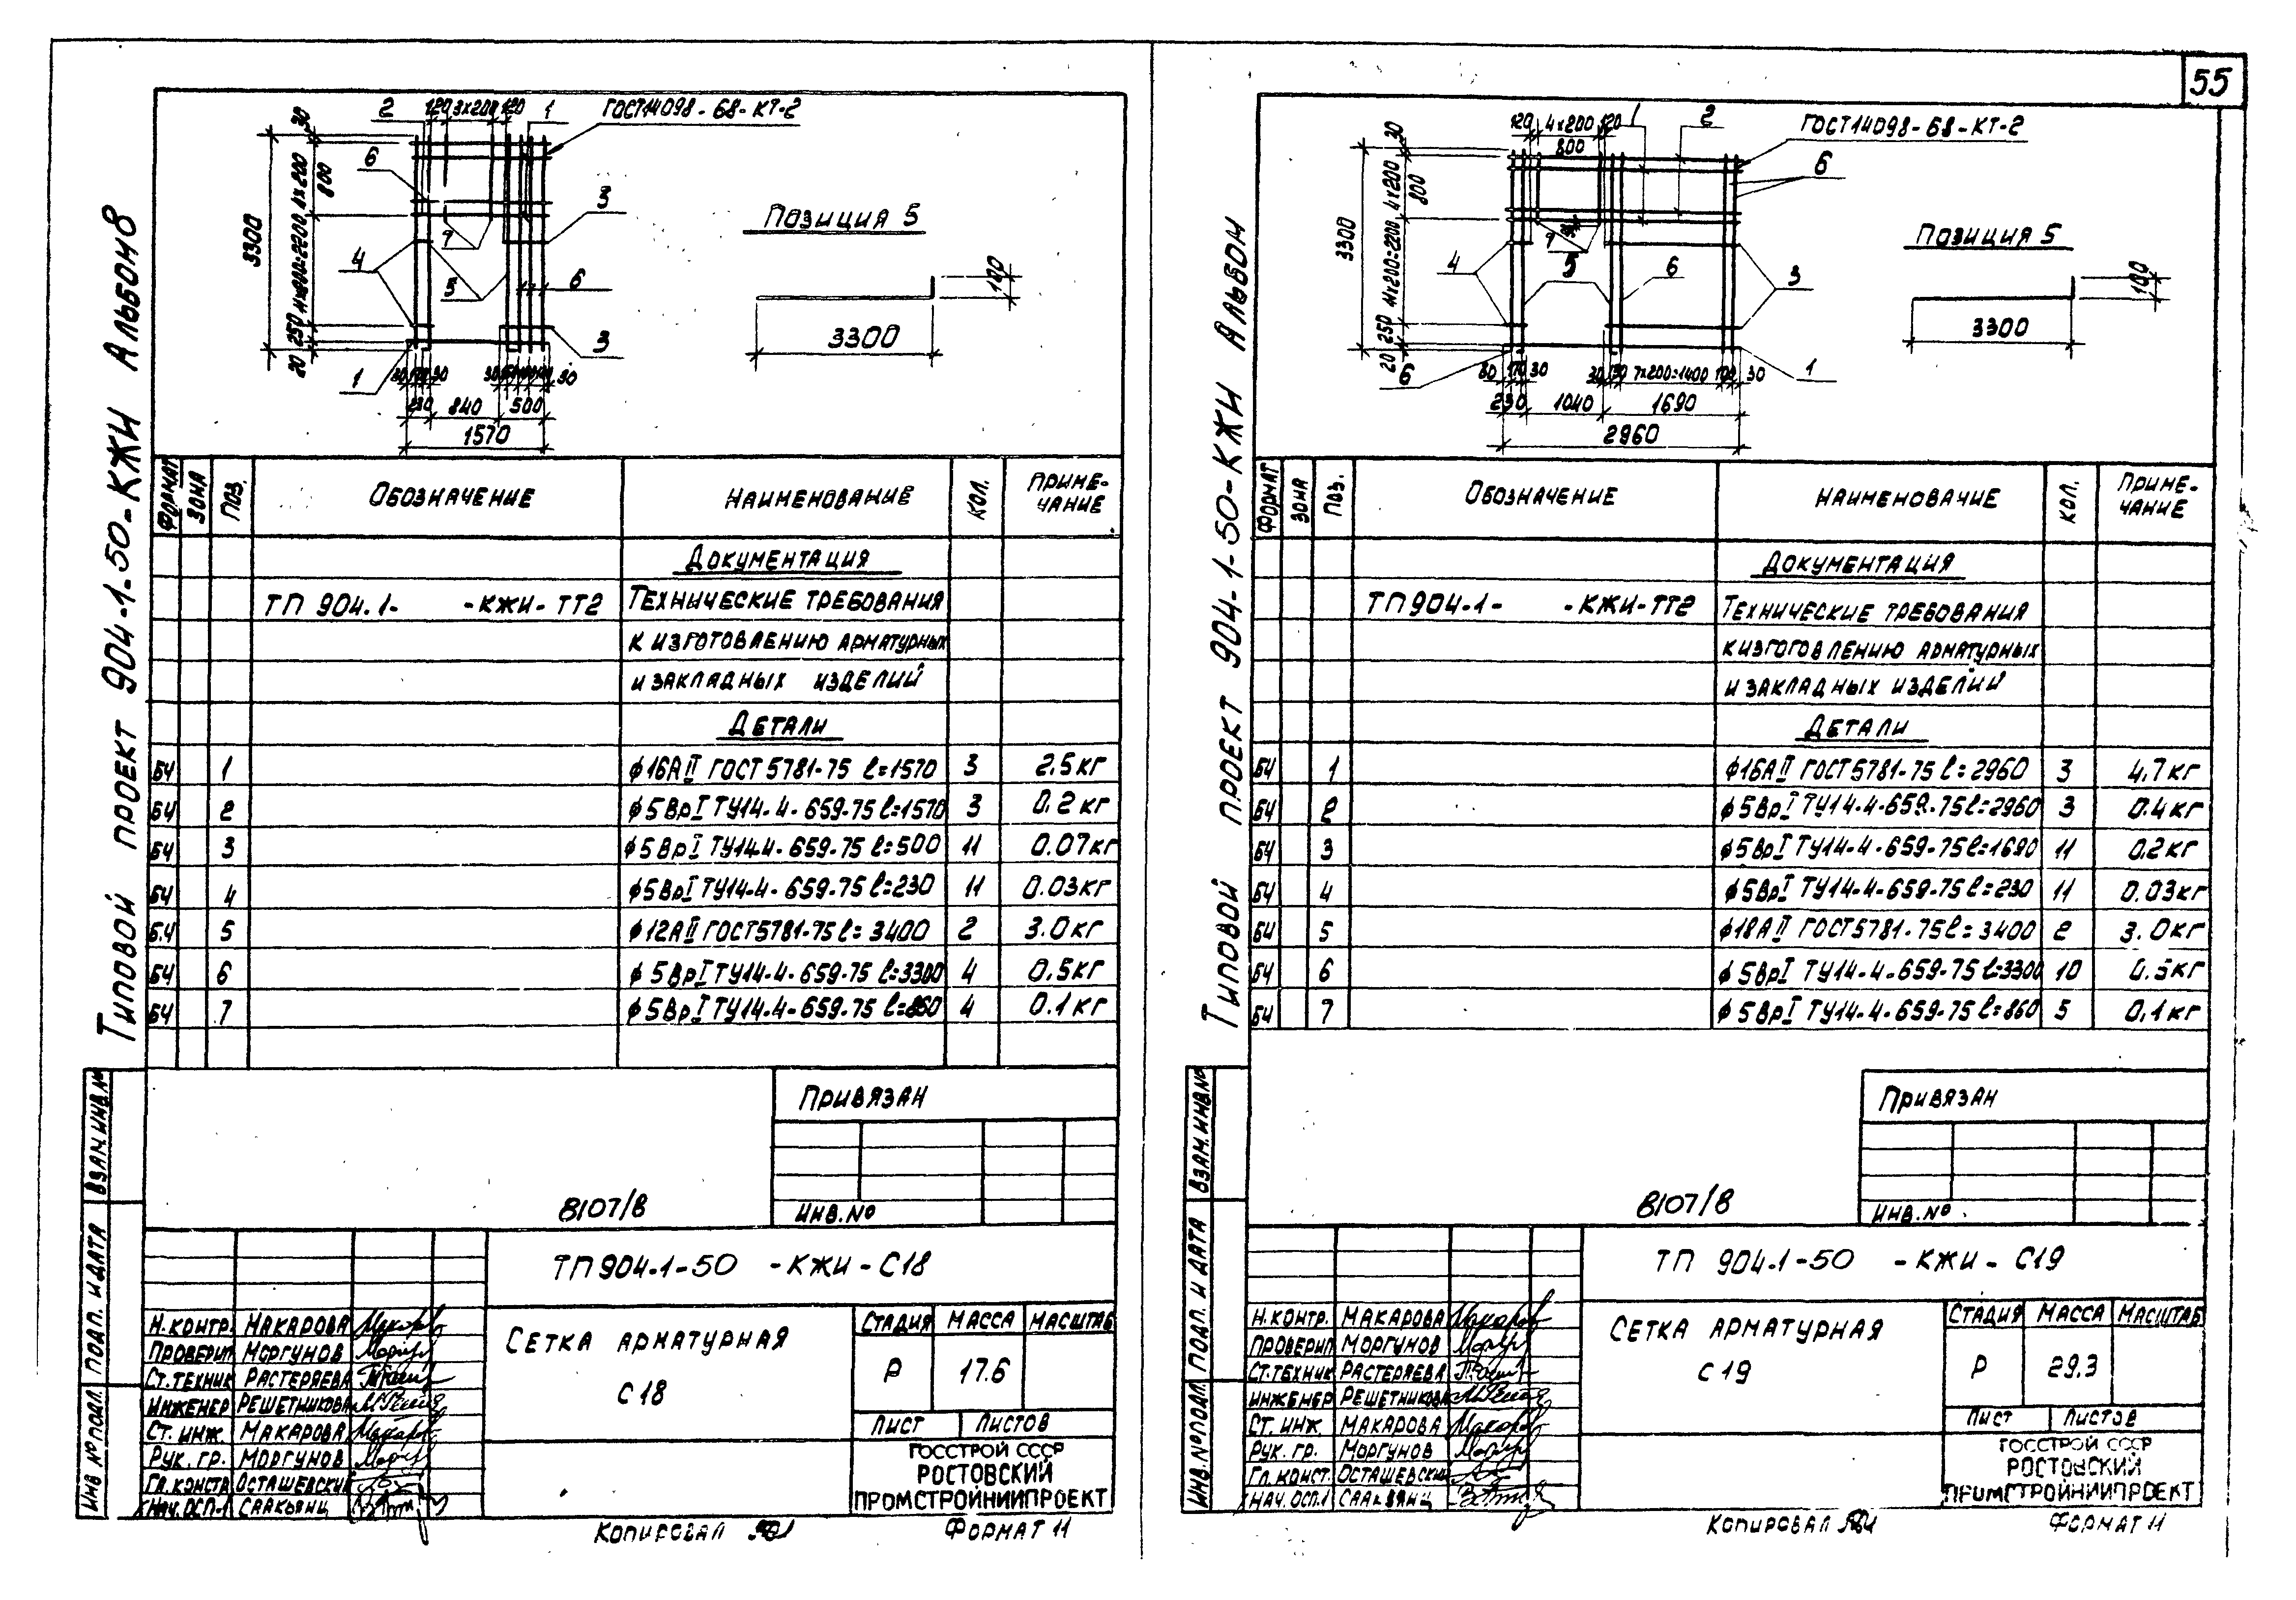 55
Типовой проект 904-1-50-КЖИ Альбом 8
2
120 3×200 120
1
ГОСТ 14098-68-КТ-2
30
4×200
800
6
3
3300
11×200=2200
7
4
5
6
250
20
3
1
30
30
230
840
500
1570
Позиция 5
100
3300
Формат
Зона
Поз.
Обозначение
Наименование
Кол.
Примечание
Документация
ТП 904.1- -КЖИ-ТТ2 Технические требования
к изготовлению арматурных
и закладных изделий
Детали
БЧ 1 ф16АII ГОСТ 5781-75 ℓ=1570 3 2.5кг
БЧ 2 ф5ВрI ТУ14-4-659-75 ℓ=1570 3 0.2кг
БЧ 3 ф5ВрI ТУ14-4-659-75 ℓ=500 11 0.07кг
БЧ 4 ф5ВрI ТУ14-4-659-75 ℓ=230 11 0.03кг
БЧ 5 ф12АII ГОСТ5781-75 ℓ=3400 2 3.0кг
БЧ 6 ф5ВрI ТУ14-4-659-75 ℓ=3300 4 0.5кг
БЧ 7 ф5ВрI ТУ14-4-659-75 ℓ=860 4 0.1кг
Привязан
Инв.№
8107/8
Взам.инв.№
Подп. и дата
Инв № подл.
ТП 904-1-50 -КЖИ-С18
Н.контр. Макарова
Проверил Моргунов
Ст.техник Растеряева
Инженер Решетникова
Ст. инж. Макарова
Рук. гр. Моргунов
Гл.констр Осташевский
Нач.ОСП-1 Саакьянц
Сетка арматурная
С18
Стадия Масса Масштаб
Р 17.6
Лист Листов
ГОССТРОЙ СССР
РОСТОВСКИЙ
ПРОМСТРОЙНИИПРОЕКТ
Копировал
Формат 11
Типовой проект 904-1-50-КЖИ Альбом
120 4×200 120
800
1
2
ГОСТ 14098-68-КТ-2
6
30
4×200
800
3300
11×200=2200
7
4
5
6
3
250
20
6
1
30 170 30
7×200=1400 100 30
230
1040
1690
2960
Позиция 5
100
3300
Формат
Зона
Поз.
Обозначение
Наименование
Кол.
Примечание
Документация
ТП904-1- -КЖИ-ТТ2 Технические требования
к изготовлению арматурных
и закладных изделий
Детали
БЧ 1 ф16АII ГОСТ5781-75 ℓ=2960 3 4.7кг
БЧ 2 ф5ВрI ТУ14-4-659-75 ℓ=2960 3 0.4кг
БЧ 3 ф5ВрI ТУ14-4-659-75 ℓ=1690 11 0.2кг
БЧ 4 ф5ВрI ТУ14-4-659-75 ℓ=230 11 0.03кг
БЧ 5 ф18АII ГОСТ5781-75 ℓ=3400 2 3.0кг
БЧ 6 ф5ВрI ТУ14-4-659-75 ℓ=3300 10 0.5кг
БЧ 7 ф5ВрI ТУ14-4-659-75 ℓ=860 5 0.1кг
Привязан
Инв.№
8107/8
Взам.инв.№
Подп. и дата
Инв.№подл.
ТП 904-1-50 -КЖИ-С19
Н.контр. Макарова
Проверил Моргунов
Ст.техник Растеряева
Инженер Решетникова
Ст. инж. Макарова
Рук. гр. Моргунов
Гл.конст. Осташевский
Нач.ОСП.1 Саакьянц
Сетка арматурная
С19
Стадия Масса Масштаб
Р 29.3
Лист Листов
ГОССТРОЙ СССР
РОСТОВСКИЙ
ПРОМСТРОЙНИИПРОЕКТ
Копировал
Формат 11